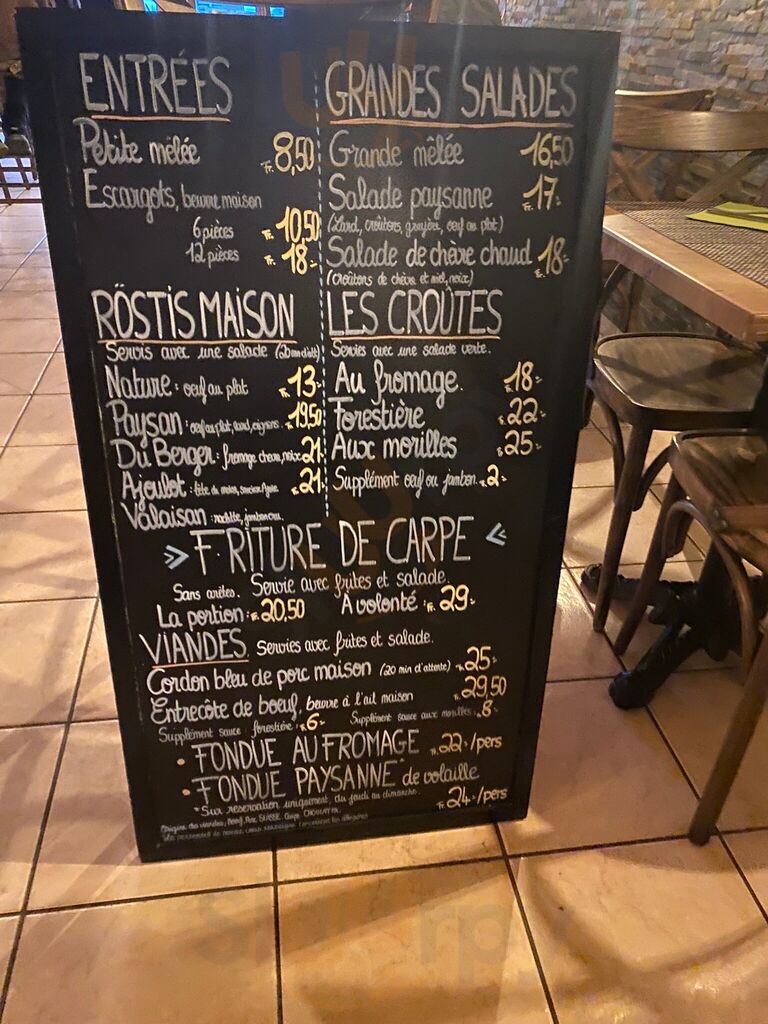 ENTRÉES
Petite mêlée Fr. 8,50
Escargots, beurre maison
6 pièces Fr. 10,50
12 pièces Fr. 18.-
GRANDES SALADES
Grande mêlée 16,50
Salade paysanne Fr. 17.-
(Lard, croûtons, gruyère, oeuf au plat)
Salade de chèvre chaud Fr. 18.-
(Croûtons de chèvre et miel, noix)
RÖSTIS MAISON
Servis avec une salade
Nature: oeuf au plat 13.-
Paysan: oeuf au plat, lard, oignons 19,50
Du Berger: fromage chèvre, noix 21.-
Ajoulot: tête de moine, 21.-
Valaisan: raclette, jambon cru
LES CROÛTES
Servies avec une salade verte.
Au fromage. 18.-
Forestière 22.-
Aux morilles 25.-
Supplément oeuf ou jambon 2.-
FRITURE DE CARPE
Sans arêtes. Servie avec frites et salade.
La portion: Fr. 20,50 À volonté: Fr. 29.-
VIANDES Servies avec frites et salade.
Cordon bleu de porc maison (20 min d'attente) Fr. 25.-
Entrecôte de boeuf, beurre à l'ail maison Fr. 29,50
Supplément sauce forestière: 6.- Supplément sauce aux morilles 8.-
• FONDUE AU FROMAGE Fr. 22.-/pers
• FONDUE PAYSANNE* de volaille
Fr. 24.-/pers
*Sur réservation uniquement, du jeudi au dimanche.
Origine des viandes: Boeuf, Porc SUISSE.